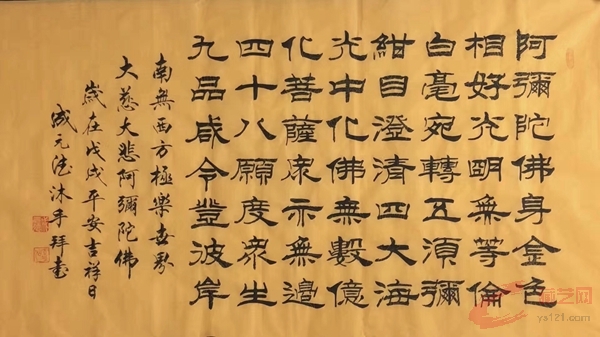 阿彌陀佛身金色
相好光明無等倫
白毫宛轉五須彌
紺目澄清四大海
光中化佛無數億
化菩薩眾亦無邊
四十八願度眾生
九品咸令登彼岸
南無西方極樂世界
大慈大悲阿彌陀佛
歲在戊戌平安吉祥日
成元沐手拜書
藏艺网
ys121.com